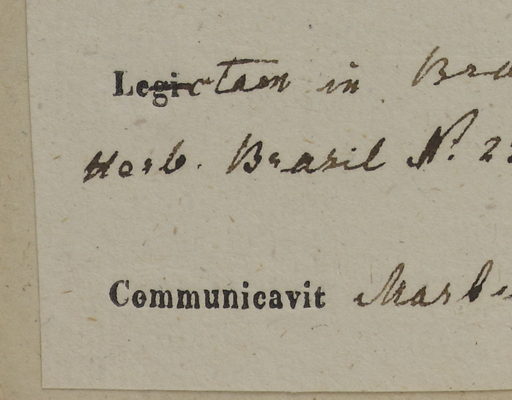 Legi ctam in Bra
Herb. Brasil N. 2
Communicavit Mart